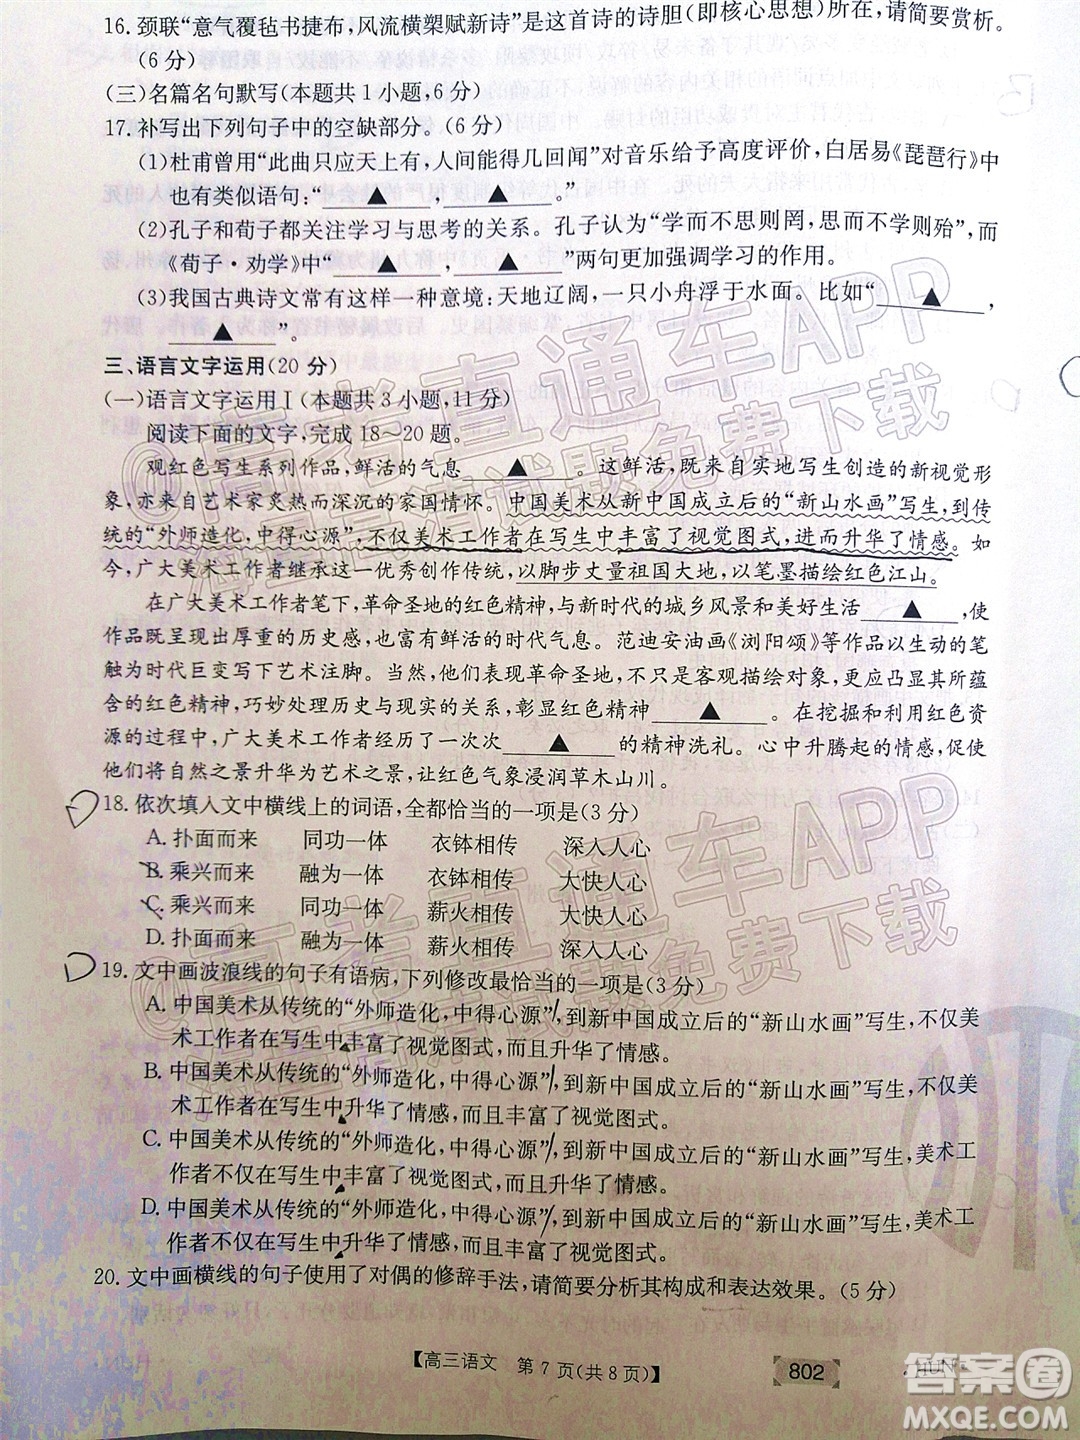 16. 颈联“意气覆毡书捷布，风流横槊赋新诗”是这首诗的诗胆(即核心思想)所在，请简要赏析。
(6分)
(三)名篇名句默写(本题共1小题，6分)
17. 补写出下列句子中的空缺部分。(6分)
(1)杜甫曾用“此曲只应天上有，人间能得几回闻”对音乐给予高度评价，白居易《琵琶行》中
也有类似语句：“▲，▲。”
(2)孔子和荀子都关注学习与思考的关系。孔子认为“学而不思则罔，思而不学则殆”，而
《荀子·劝学》中“▲，▲”两句更加强调学习的作用。
(3)我国古典诗文常有这样一种意境：天地辽阔，一只小舟浮于水面。比如“▲，
▲”。
三、语言文字运用(20分)
(一)语言文字运用Ⅰ(本题共3小题，11分)
阅读下面的文字，完成18～20题。
观红色写生系列作品，鲜活的气息▲。这鲜活，既来自实地写生创造的新视觉形
象，亦来自艺术家炙热而深沉的家国情怀。中国美术从新中国成立后的“新山水画”写生，到传
统的“外师造化，中得心源”，不仅美术工作者在写生中丰富了视觉图式，进而升华了情感。如
今，广大美术工作者继承这一优秀创作传统，以脚步丈量祖国大地，以笔墨描绘红色江山。
在广大美术工作者笔下，革命圣地的红色精神，与新时代的城乡风景和美好生活▲，使
作品既呈现出厚重的历史感，也富有鲜活的时代气息。范迪安油画《浏阳颂》等作品以生动的笔
触为时代巨变写下艺术注脚。他们表现革命圣地，不只是客观描绘对象，更应凸显其所蕴
含的红色精神，巧妙处理历史与现实的关系，彰显红色精神▲。在挖掘和利用红色资
源的过程中，广大美术工作者经历了一次次▲的精神洗礼。心中升腾起的情感，促使
他们将自然之景升华为艺术之景，让红色气象浸润草木山川。
18. 依次填入文中横线上的词语，全都恰当的一项是(3分)
A. 扑面而来 同功一体 衣钵相传 深入人心
B. 乘兴而来 融为一体 衣钵相传 大快人心
C. 乘兴而来 同功一体 薪火相传 大快人心
D. 扑面而来 融为一体 薪火相传 深入人心
19. 文中画波浪线的句子有语病，下列修改最恰当的一项是(3分)
A. 中国美术从传统的“外师造化，中得心源”，到新中国成立后的“新山水画”写生，不仅美
术工作者在写生中丰富了视觉图式，而且升华了情感。
B. 中国美术从传统的“外师造化，中得心源”，到新中国成立后的“新山水画”写生，不仅美
术工作者在写生中升华了情感，而且丰富了视觉图式。
C. 中国美术从传统的“外师造化，中得心源”，到新中国成立后的“新山水画”写生，美术工
作者不仅在写生中丰富了视觉图式，而且升华了情感。
D. 中国美术从传统的“外师造化，中得心源”，到新中国成立后的“新山水画”写生，美术工
作者不仅在写生中升华了情感，而且丰富了视觉图式。
20. 文中画横线的句子使用了对偶的修辞手法，请简要分析其构成和表达效果。(5分)
【高三语文 第7页(共8页)】
802
答案圈
MXQE.COM
@高考直通车APP
海量高清试题免费下载
@高考直通车APP
海量高清试题免费下载